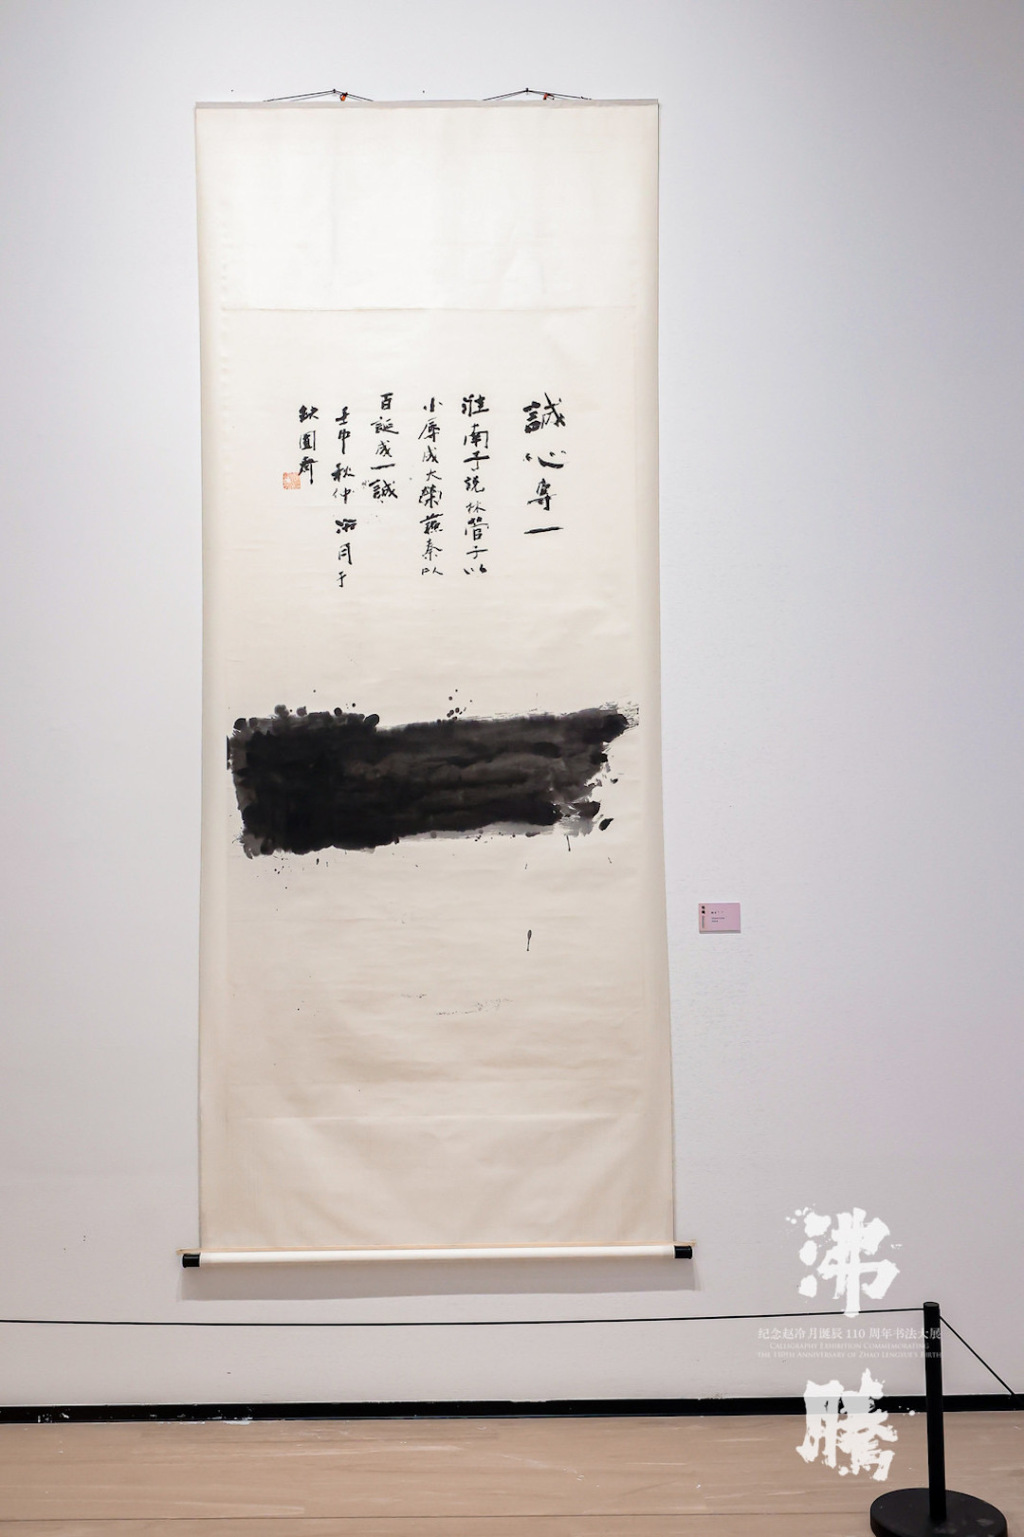 誠心專一
淮南子説林管子以
小辱成大榮蘇秦以
百誕成一誠
壬申秋仲冷月于
缺圓齋
沸
纪念赵冷月诞辰 110 周年书法大展
CALLIGRAPHY EXHIBITION COMMEMORATING
THE 110TH ANNIVERSARY OF ZHAO LENGYUE'S BIRTH
騰